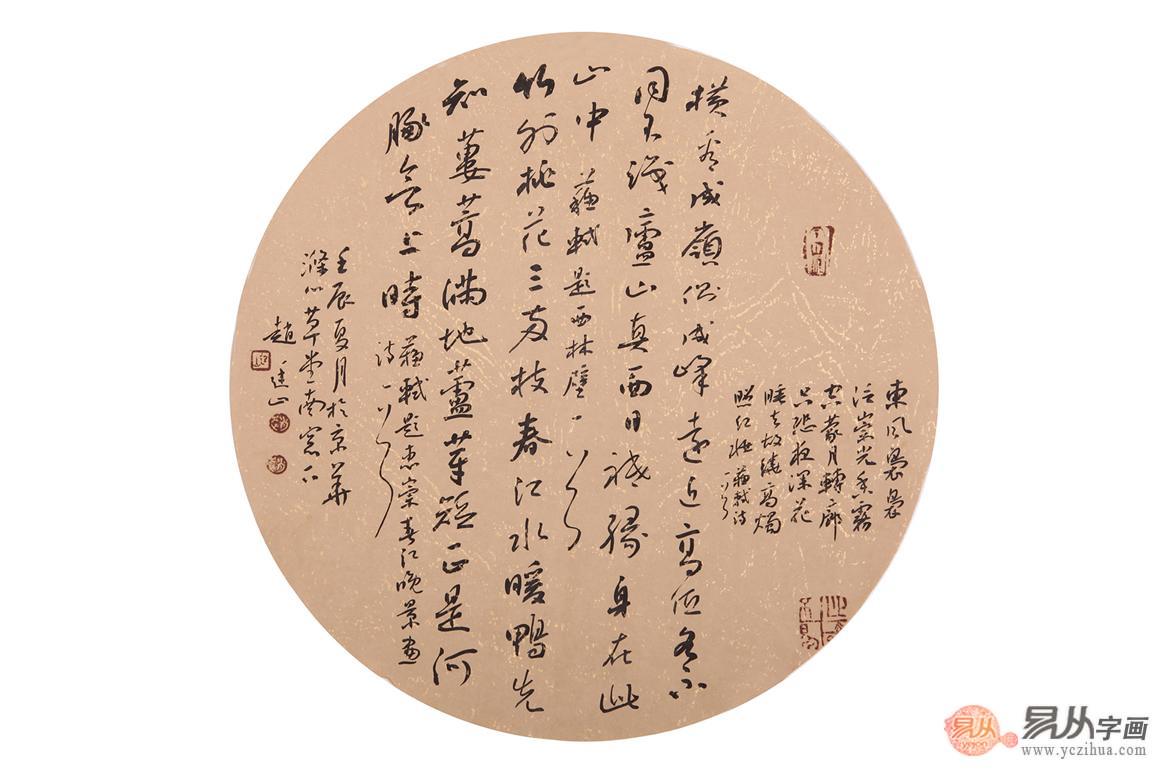 東風裊裊
泛崇光香霧
空蒙月轉廊
只恐夜深花
睡去故燒高燭
照紅妝蘇軾詩一首
橫看成嶺側成峰遠近高低各不
同不識廬山真面目祇緣身在此
山中蘇軾題西林壁一首
竹外桃花三兩枝春江水暖鴨先
知蔞蒿滿地蘆芽短正是河
豚欲上時蘇軾題惠崇春江晚景畫
詩一首
壬辰夏月於京華
滌心草堂南窗下
趙
易从
易从字画
www.yczihua.com